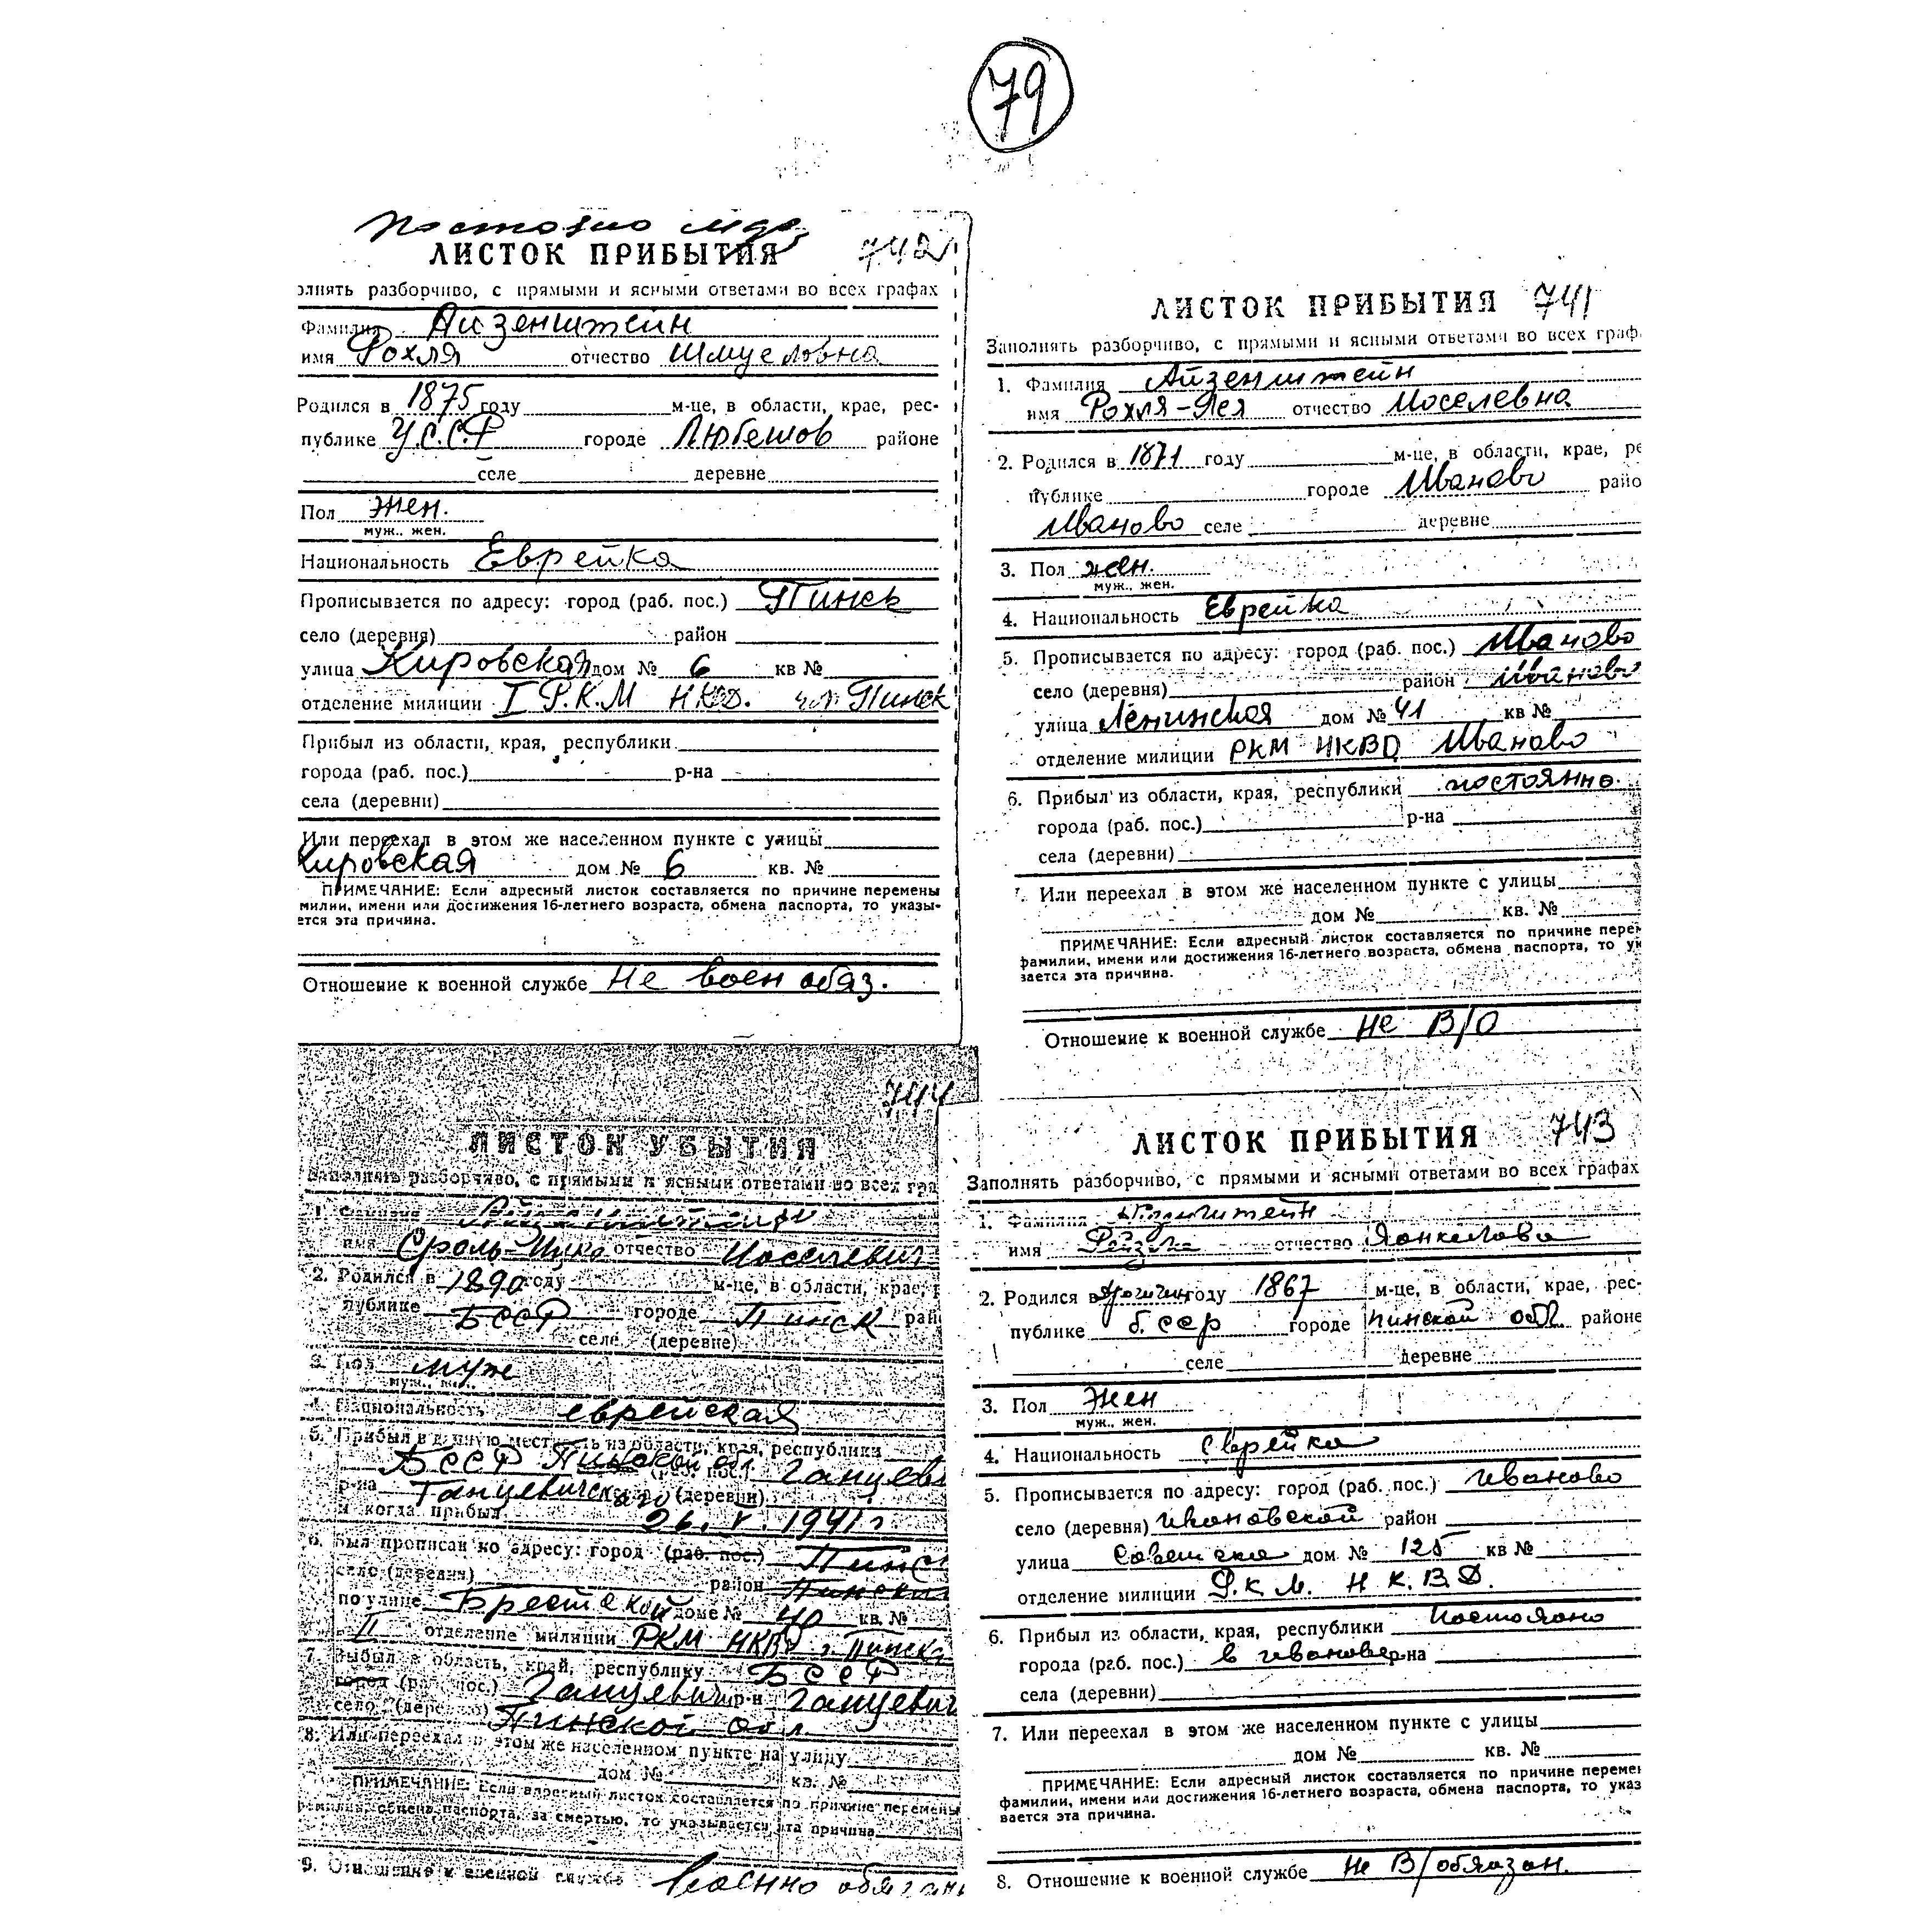 79
742
ЛИСТОК ПРИБЫТИЯ
олнять разборчиво, с прямыми и ясными ответами во всех графах
Фамилия Айзенштейн
имя Рохля отчество Шмуеловна
Родился в 1875 году м-це, в области, крае, рес-
публике У.С.С.Р городе Любешов районе
селе деревне
Пол жен.
муж., жен.
Национальность Еврейка
Прописывается по адресу: город (раб. пос.) Пинск
село (деревня) район
улица Кировская дом № 6 кв №
отделение милиции I Р.К.М Пинск
Прибыл из области, края, республики
города (раб. пос.) р-на
села (деревни)
Или переехал в этом же населенном пункте с улицы
Кировская дом № 6 кв. №
ПРИМЕЧАНИЕ: Если адресный листок составляется по причине перемены
милии, имени или достижения 16-летнего возраста, обмена паспорта, то указы-
ется эта причина.
Отношение к военной службе Не воен обяз.
ЛИСТОК ПРИБЫТИЯ 741
Заполнять разборчиво, с прямыми и ясными ответами во всех граф
1. Фамилия Айзенштейн
имя Рохля-Лея отчество Иоселевна
2. Родился в 1871 году м-це, в области, крае, ре
публике городе Иваново райо
Иваново селе деревне
3. Пол жен.
муж., жен.
4. Национальность Еврейка
5. Прописывается по адресу: город (раб. пос.) Иваново
село (деревня) район Иваново
улица Ленинская дом № 41 кв №
отделение милиции РКМ НКВД Иваново
6. Прибыл из области, края, республики постоянно.
города (раб. пос.) р-на
села (деревни)
Или переехал в этом же населенном пункте с улицы
дом № кв. №
ПРИМЕЧАНИЕ: Если адресный листок составляется по причине пере
фамилии, имени или достижения 16-летнего возраста, обмена паспорта, то ук
зается эта причина.
Отношение к военной службе Не В/О
744
ЛИСТОК УБЫТИЯ
Заполнять разборчиво, с прямыми и ясными ответами во всех гра
1. Фамилия
имя Сроль-Ицка отчество Иоселевич
2. Родился в 1890 году м-це, в области, крае, р
публике БССР городе Пинск рай
селе (деревне)
3. Пол муж
муж., жен.
4. Национальность еврейская
5. Прибыл в данную местность из области, края, республики
БССР Пинской обл. (раб. пос.) Ганцеви
р-на Ганцевичского (деревни)
и когда прибыл 26. V. 1941 г.
6. Был прописан по адресу: город (раб. пос.) Пинс
село (деревня) район Пински
по улице Брестской доме № 40 кв. №
II отделение милиции РКМ НКВД г. Пинска
7. Выбыл в область, край, республику БССР
город (раб. пос.) Ганцевичи р-н Ганцевич
село (деревню) Пинской обл.
8. Или переехал в этом же населенном пункте на улицу
дом № кв. №
ПРИМЕЧАНИЕ: Если адресный листок составляется по причине перемены
фамилии, обмена паспорта, за смертью, то указывается эта причина
9. Отношение к военной службе Военно обязан
ЛИСТОК ПРИБЫТИЯ 743
Заполнять разборчиво, с прямыми и ясными ответами во всех графах
1. Фамилия
имя Рейзля отчество Янкелова
2. Родился в году 1867 м-це, в области, крае, рес-
публике б. сср городе пинской обл районе
селе деревне
3. Пол Жен
муж., жен.
4. Национальность Еврейка
5. Прописывается по адресу: город (раб. пос.) Иваново
село (деревня) Ивановской район
улица Советска дом № 125 кв №
отделение милиции Р.К.М. Н.К.В.Д.
6. Прибыл из области, края, республики Постояно
города (раб. пос.) в Иванове р-на
села (деревни)
7. Или переехал в этом же населенном пункте с улицы
дом № кв. №
ПРИМЕЧАНИЕ: Если адресный листок составляется по причине переме
фамилии, имени или достижения 16-летнего возраста, обмена паспорта, то указ
вается эта причина.
8. Отношение к военной службе Не В/обязан.